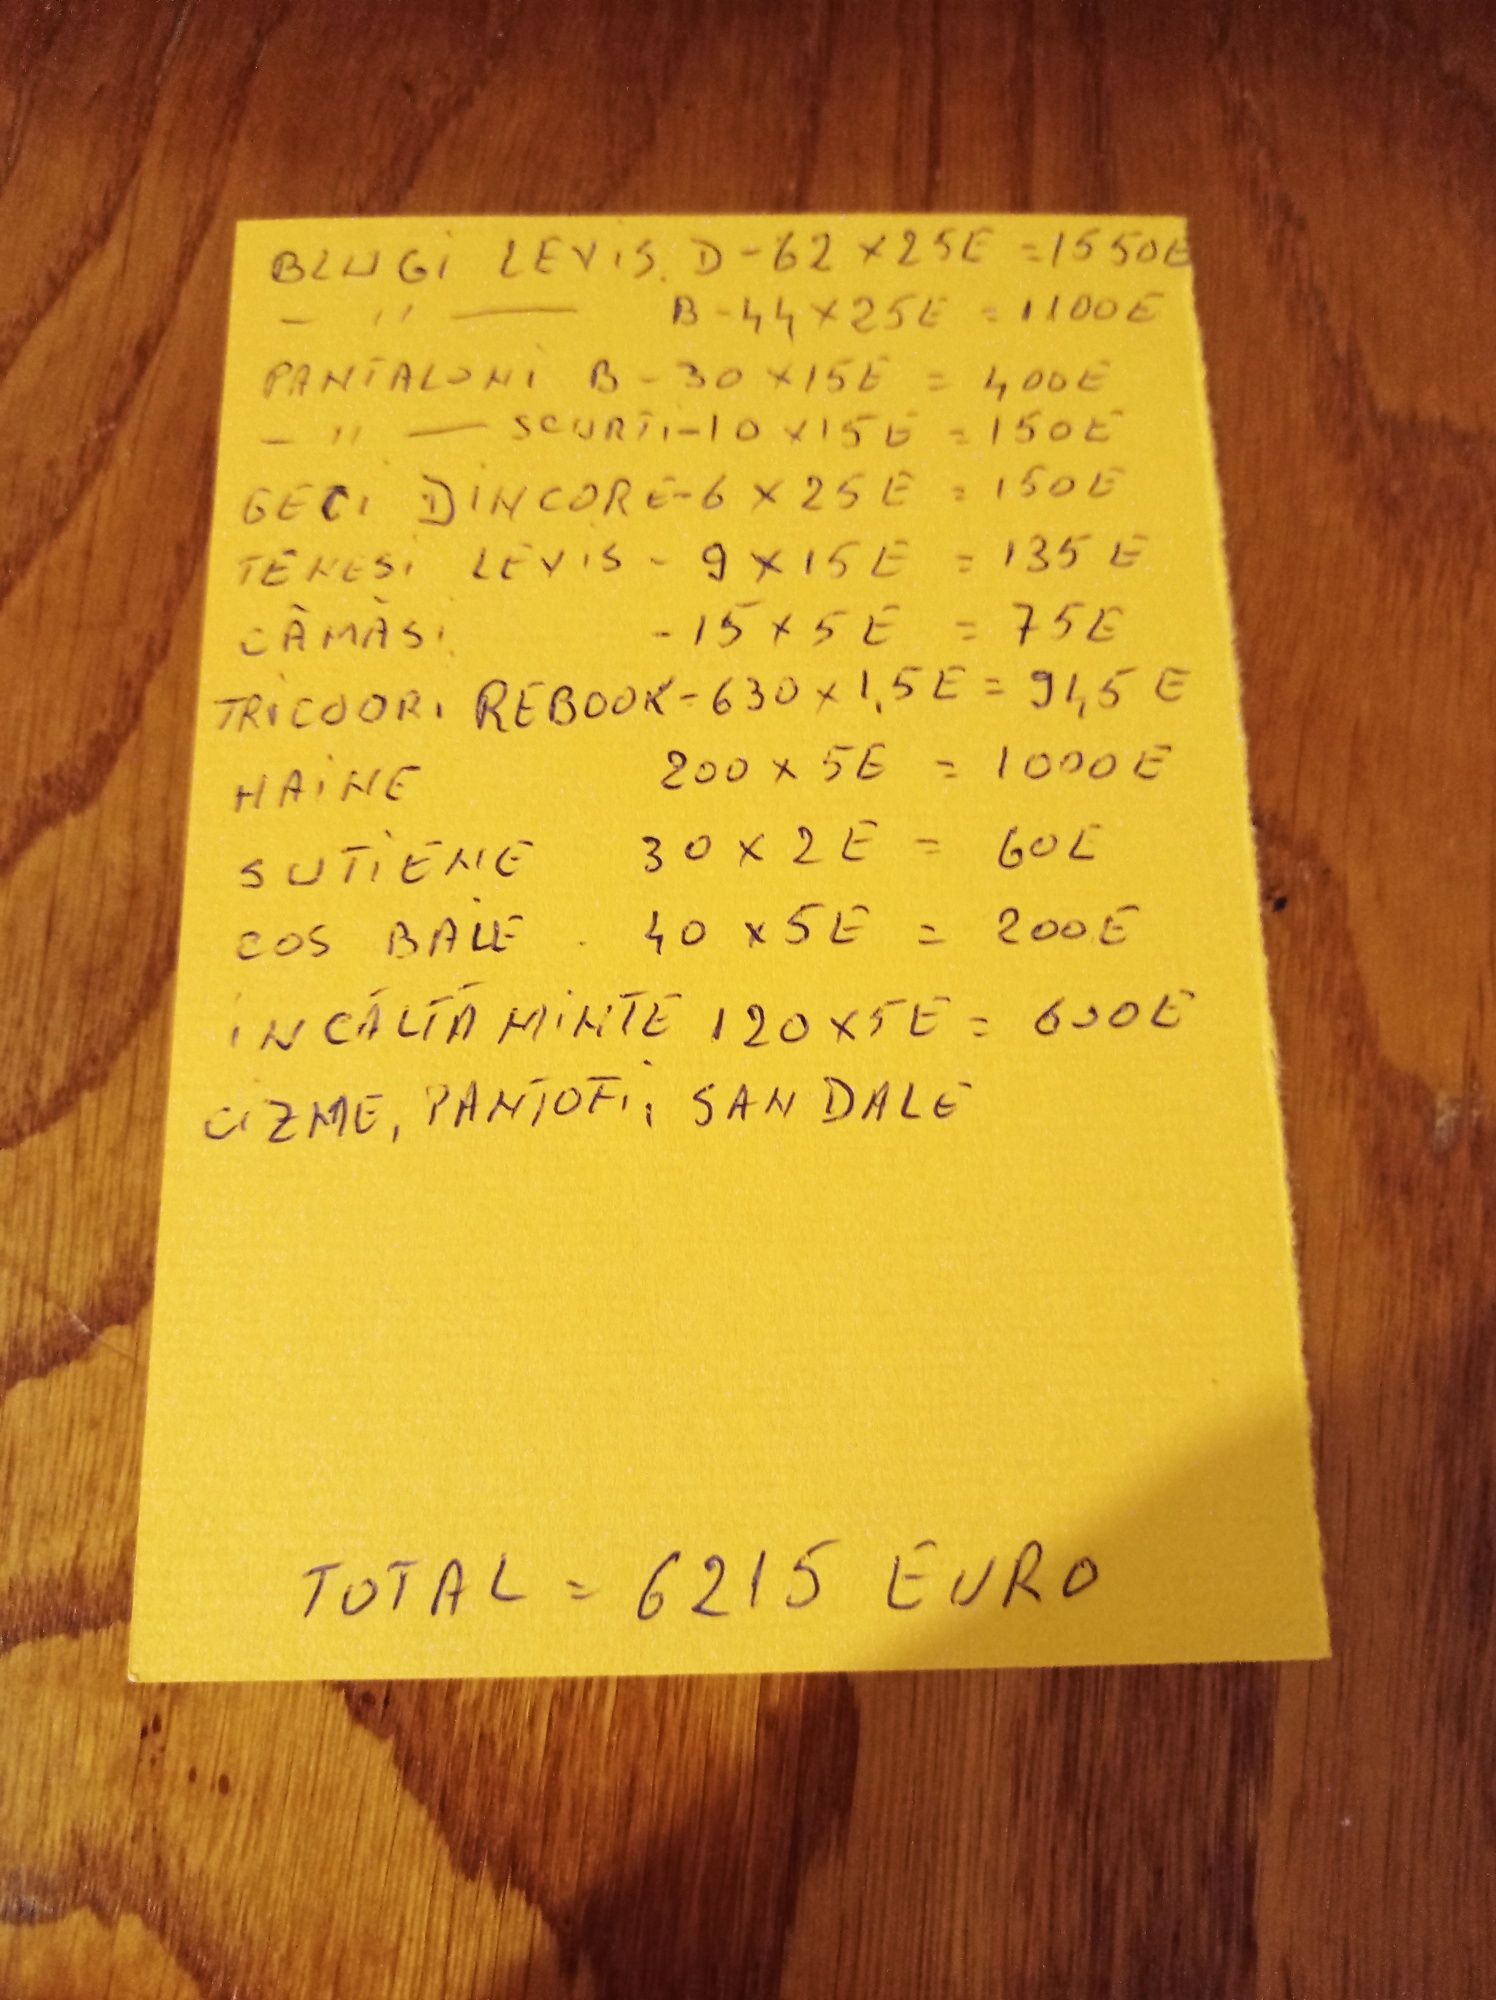 BLUGI LEVIS. D-62 x 25E = 1550E
- " — B-44 x 25E = 1100E
PANTALONI B-30 x 15E = 400E
- " — SCURTI-10 x 15E = 150E
GECI DINCORE-6 x 25E = 150E
TENESI LEVIS - 9 x 15E = 135E
CĂMĂSI - 15 x 5E = 75E
TRICOORI REBOOK-630 x 1,5E = 945E
HAINE 200 x 5E = 1000E
SUTIENE 30 x 2E = 60E
COS BAIE . 40 x 5E = 200E
INCĂLTĂMINTE 120 x 5E = 600E
CIZME, PANTOFI, SANDALE
TOTAL = 6215 EURO